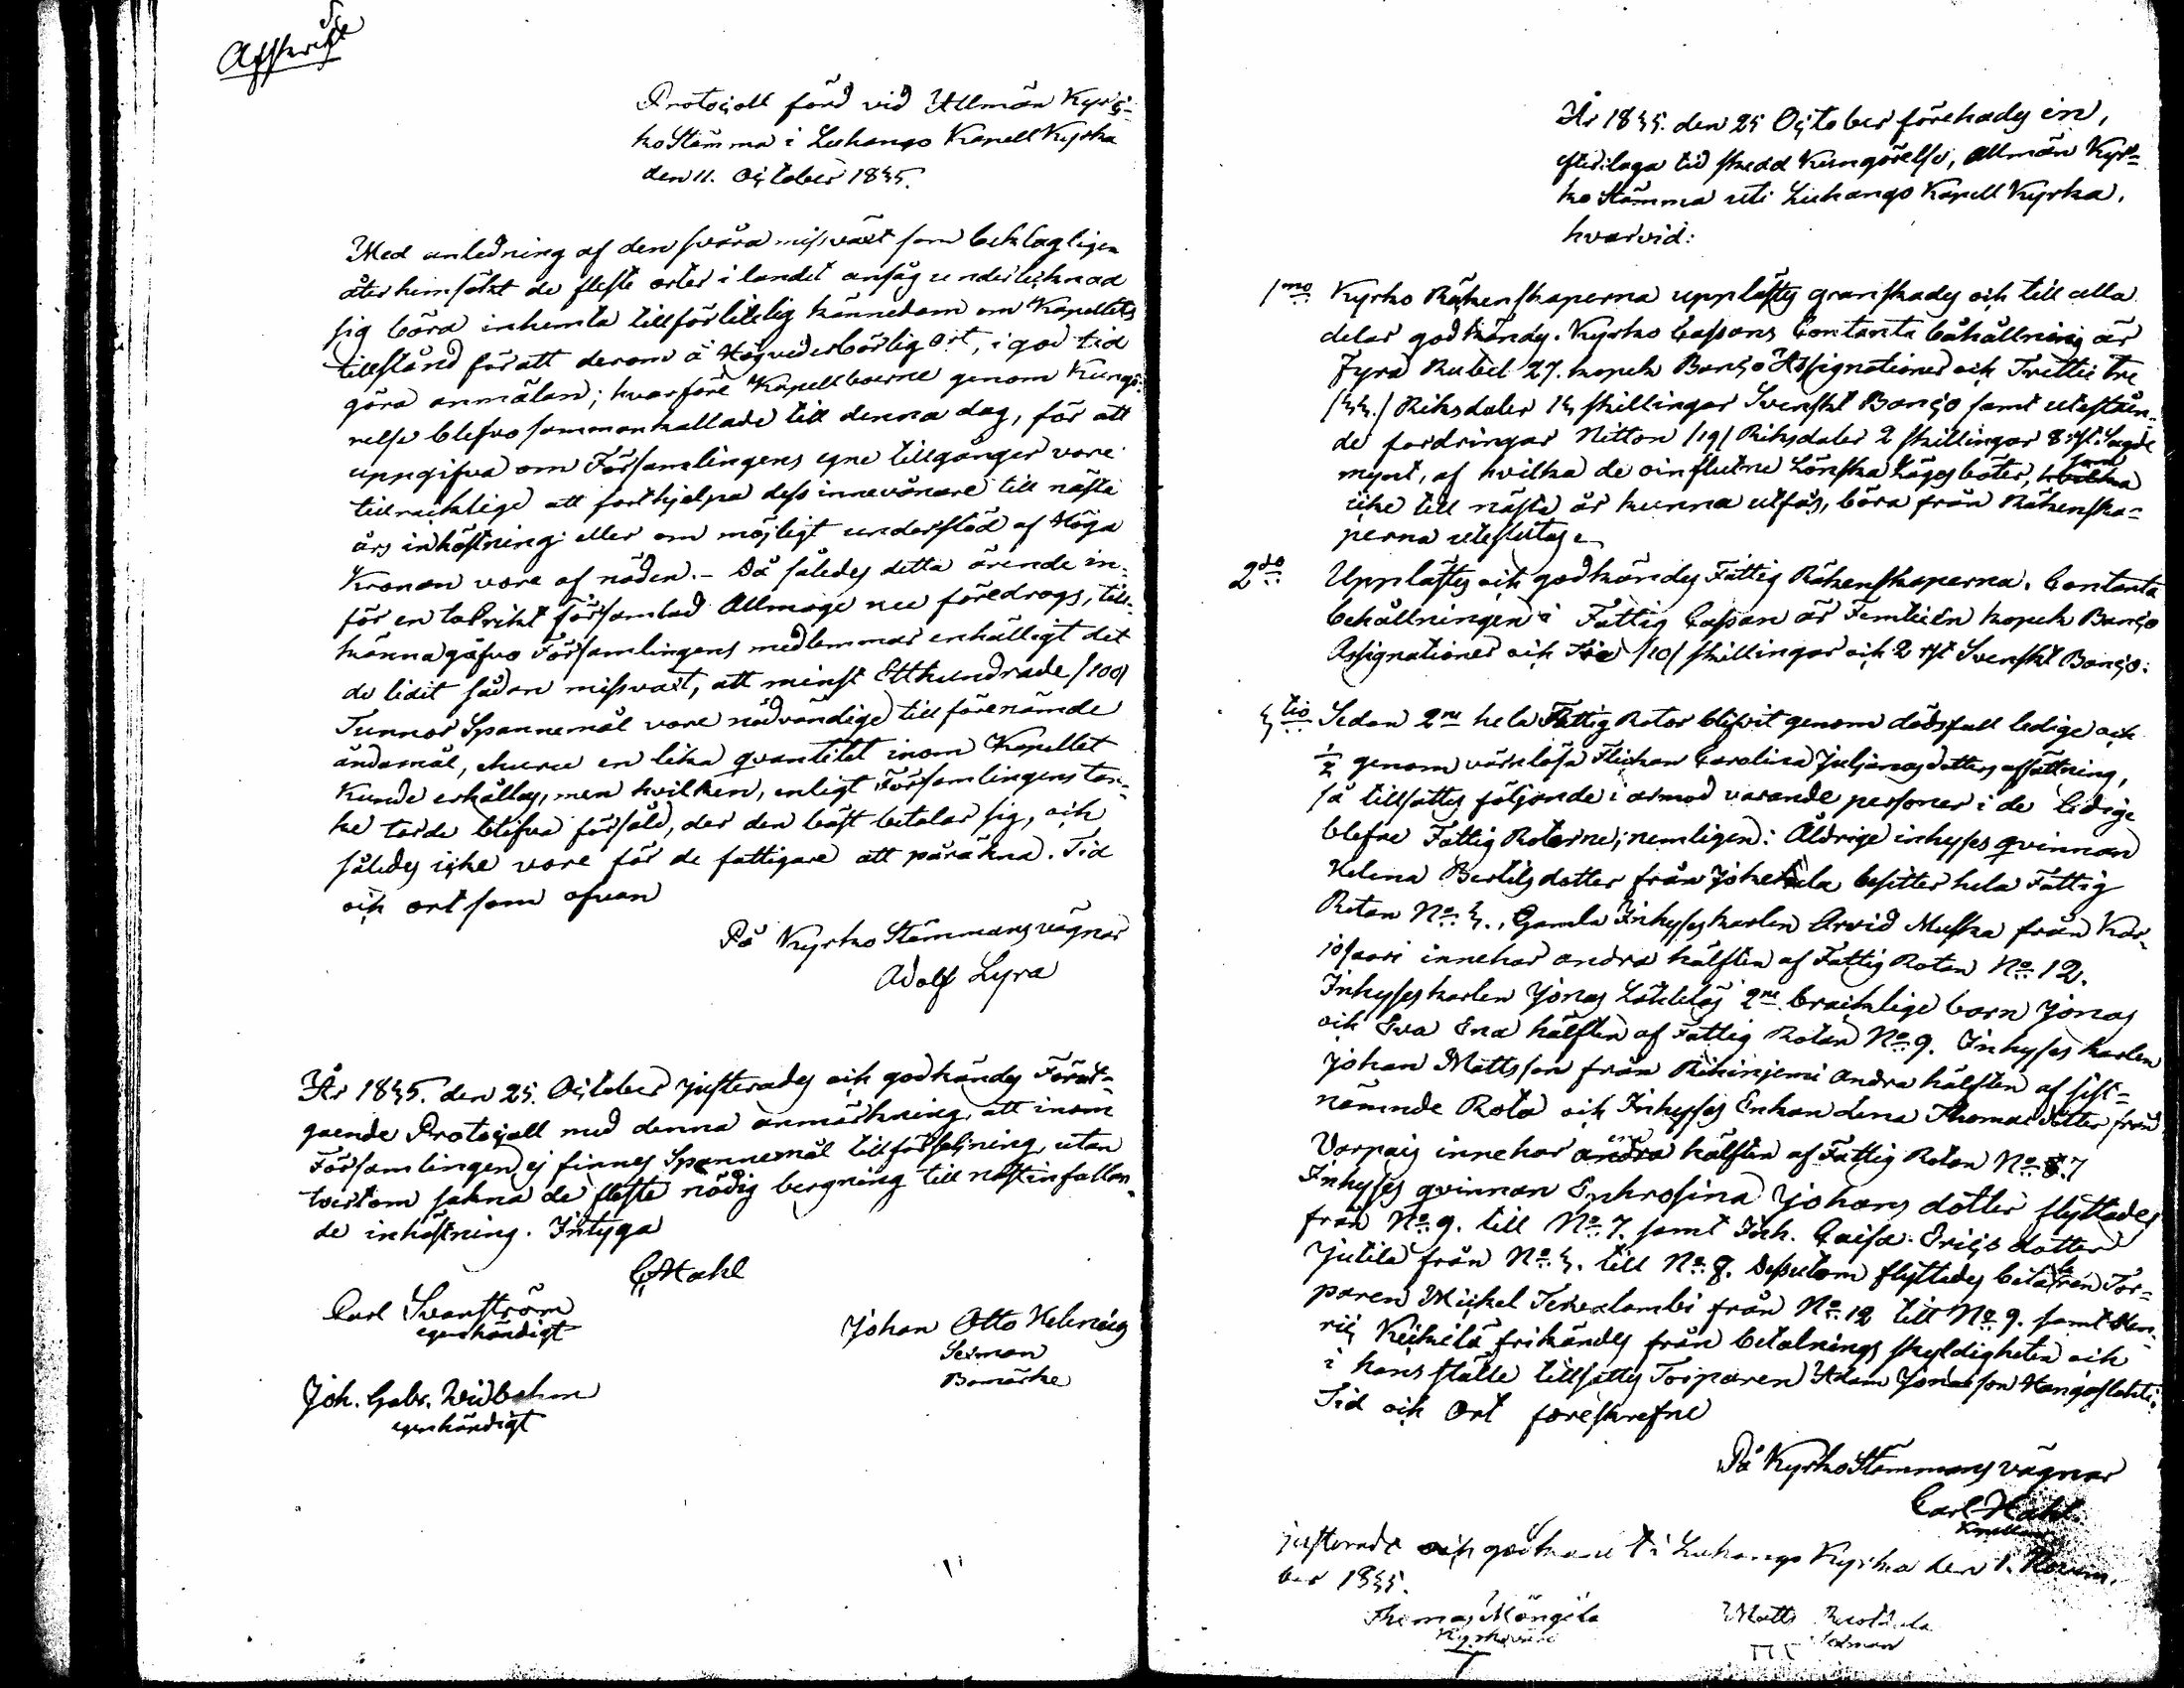 Afskrift
Protocoll förd vid Allmän Kyr=
ko Stämma i Luhango Kapell Kyrka
den 11. October 1835.
Med anledning af den svåra missväxt som beklagligen
åter hemsökt de fleste orter i landet ansåg undertecknad
sig böra inhemta tillförlitelig kännedom om Kapellets
tillstånd för att derom å Högvederbörlig ort, i god tid
göra anmälan; hvarföre Kapellboerne genom Kungö=
relse blefvo sammankallade till denna dag, för att
uppgifva om Församlingens egne tillgånger vore
tillräcklige att forthjelpa dess innevånare till nästa
års inhöstning eller om möjligt understöd af Höga
Kronan vore af nöden. - Då således detta ärende in=
för en talrikt församlad Allmoge nu föredrogs, till=
känna gåfvo Församlingens medlemmar enhälligt det
de lidit sådan missvaxt, att minst Etthundrade /100/
Tunnor Spannemål vore nödvändige till förenämde
ändamål, ehuru en lika qvantitet inom Kapellet
kunde erhållas, men hvilken, enligt Församlingens tan=
ke torde blifva försåld, der den bäst betalar sig, och
således icke vore för de fattigare att påräkna. Tid
och ort som ofvan
På Kyrko Stämmans vägnar
Adolf Lyra
År 1835. den 25. October justerades och godkändes Föröt=
gaende Protocoll med denna anmärkning, att inom
Församlingen ej finnes Spannemål till försäljning, utan
tvertom sakna de fleste nödig bergning till nästinfallan=
de inhöstning. Intyga
C Hahl
Carl Svanström
egenhändigt
Johan Otto Helenäig
Sexman
Bomärke
Joh. Gabr. Widbohm
egenhändigt
År 1835. den 25 October förehades en,
efter laga tid skedd Kungörelse, allmän Kyr=
ko Stämma uti Luhango Kapell Kyrka,
hvarvid:
1mo Kyrko Räkenskaperna upplästes granskades och till alla
delar godkändes. Kyrko Cassans Contanta båhållning är
Fyra Rubel 27. kopek Banco Assignationer och Trettie tre
/33./ Riksdaler 13 skillingar Svenskt Banco samt uteståen=
de fordringar Nitton /19/ Riksdaler 2 skillingar 8 rst. Sagde
mynt, af hvilka de oinflutne Lönska Lägesböter, hvilka som
icke till nästa år kunna utfås, böra från Räkenska=
perna uteslutas.
2do Upplästes och godkändes Fattig Räkenskaperna. Contanta
behållningen i Fattig Cassan är Femtieen kopek Banco
Assignationer och Tio /10/ skillingar och 2 rst Svenskt Banco.
3tio Sedan 2ne hela Fattig Rotor blifvit genom dödsfall ledige och
1/2 genom värnlösa Flickan Carolina Juljanas dotters afflättning,
så tillsattes följande i armod varande personer i de ledige
blefne Fattig Roterne; nemligen: Åldrige inhyses qvinnan
Helena Bertilsdotter från Jokehela besitter hela Fattig
Rotan No 3., Gamla Inhyseskarlen Arvid Muska från Kar=
josaari innehar andra hälften af Fattig Rotan No 12.
Inhyseskarlen Jonas Lähteläs 2ne bräcklige barn Jonas
och Eva Ena hälften af Fattig Rotan No 9. Inhyses karlen
Johan Mattsson från Rihinjemi andra hälften af sist=
nämnde Rota och Inhyses Enkan Lena Thomasdotter från
Varpaig innehar andra ena hälften af Fattig Rotan No 7
Inhyses qvinnan Enhrosina Johans dotter flyttades
från No 9. till No 7. samt Inh. Caisa Erics dotter
Jutila från No 3. till No 8. Dessutom flyttades betalaren Tor=
paren Michel Tervalambi från No 12 till No 9. samt Hen=
ric Keihilä frikändes från betalnings skyldigheten och
i hans ställe tillsattes Torparen Adam Jonasson Hangaslahti.
Tid och Ort föreskrefne
På Kyrko Stämmans vägnar
Carl Hahl
justerade och godkänt i Luhango Kyrka den 1. Novem=
ber 1835.
Thomas Mängilä
Kyrkovärd
Matts
Sexman